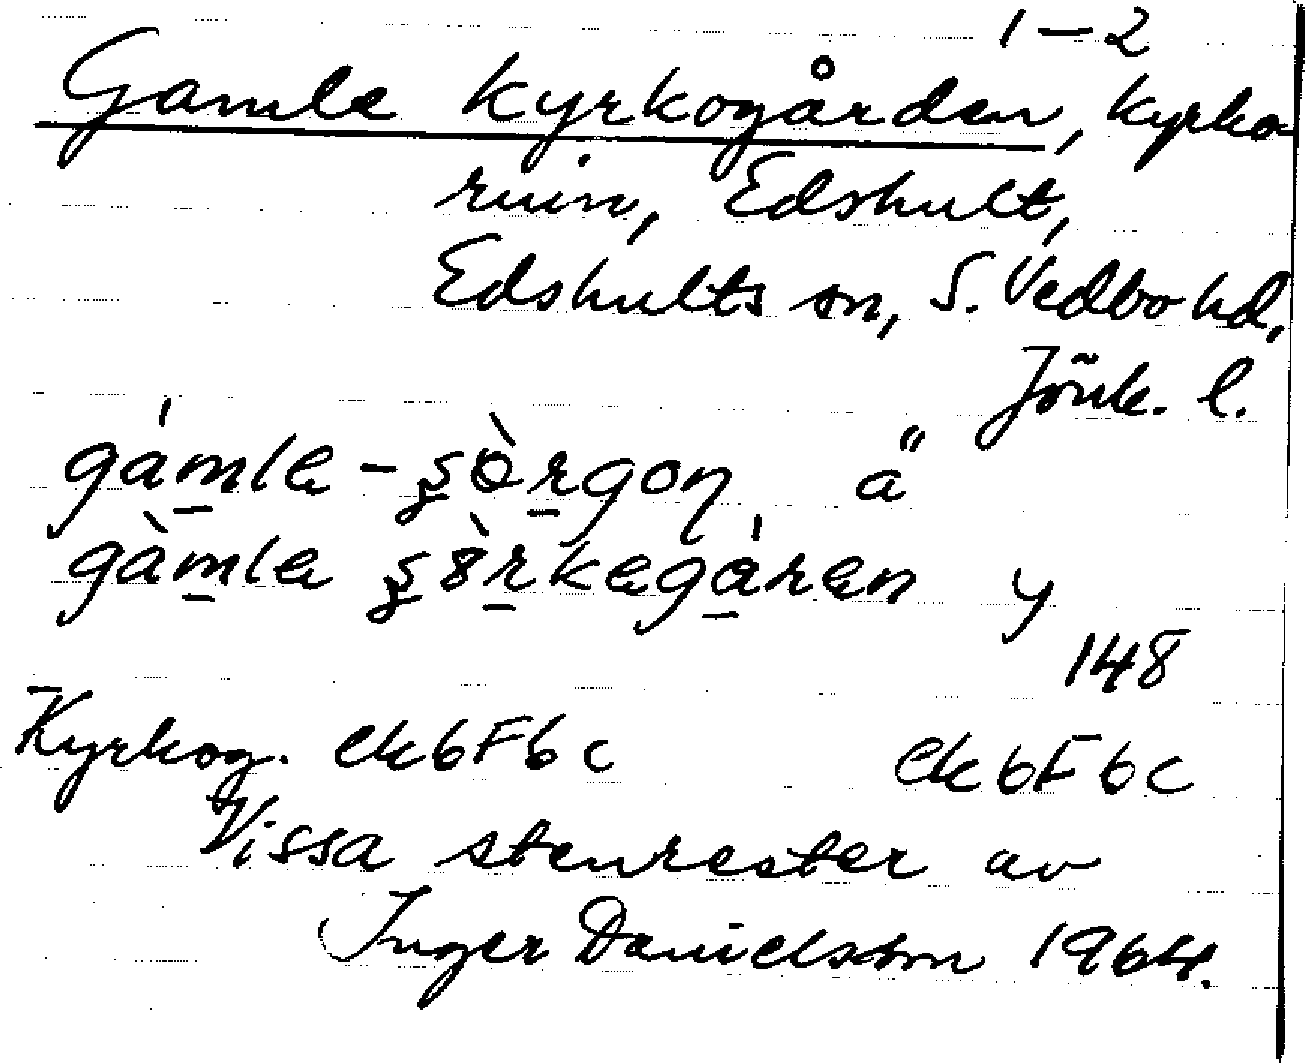 1-2
Gamle kyrkogården, kyrko-
ruin, Edshult,
Edshults sn, S. Vedbo hd,
Jönk. l.
gámle-
gàmle
148
Kyrkog. ek6F6c ek6F6c
Vissa stenrester av
Inger Danielsson 1964.